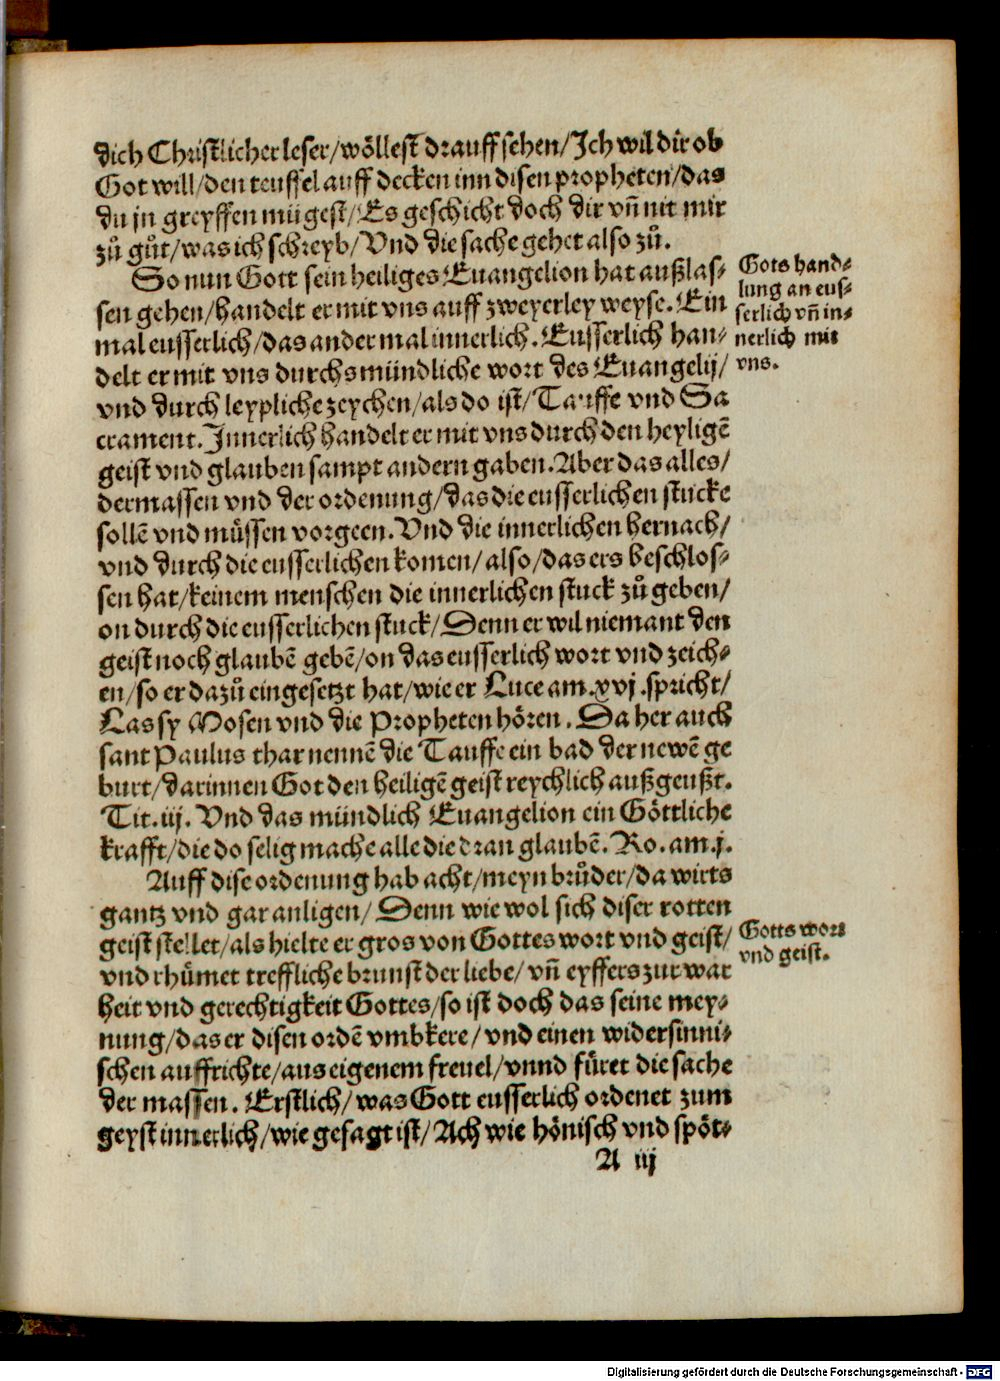 dich Christlicher leser/wöllest drauff sehen/Ich wil dir ob
Got will/den teuffel auff decken inn disen propheten/das
du jn greyffen mügest/Es geschicht doch dir vñ nit mir
zů gůt/was ich schreyb/Vnd die sache gehet also zů.
So nun Gott sein heiliges Euangelion hat außlas-
sen gehen/handelt er mit vns auff zweyerley weyse. Ein
mal eusserlich/das ander mal innerlich. Eusserlich han-
delt er mit vns durchs mündliche wort des Euangelij/
vnd durch leypliche zeychen/als do ist/Tauffe vnd Sa
crament. Innerlich handelt er mit vns durch den heyligẽ
geist vnd glauben sampt andern gaben. Aber das alles/
dermassen vnd der ordenung/das die eusserlichen stucke
sollẽ vnd müssen vorgeen. Vnd die innerlichen hernach/
vnd durch die eusserlichen komen/also/das ers beschlos-
sen hat/keinem menschen die innerlichen stuck zů geben/
on durch die eusserlichen stuck/Denn er wil niemant den
geist noch glaubẽ gebẽ/on das eusserlich wort vnd zeich-
en/so er dazů eingesetzt hat/wie er Luce am.xvj.spricht/
Las sy Mosen vnd die Propheten hören. Da her auch
sant Paulus thar nennẽ die Tauffe ein bad der newẽ ge
burt/darinnen Got den heiligẽ geist reychlich außgeußt.
Tit.iij. Vnd das mündlich Euangelion ein Göttliche
krafft/die do selig mache alle die dran glaubẽ. Ro.am.j.
Auff dise ordenung hab acht/meyn brůder/da wirts
gantz vnd gar anligen/Denn wie wol sich diser rotten
geist stellet/als hielte er gros von Gottes wort vnd geist/
vnd rhümet treffliche brunst der liebe/vñ eyffers zur war
heit vnd gerechtigkeit Gottes/so ist doch das seine mey-
nung/das er disen ordẽ vmbkere/vnd einen widersinni-
schen auffrichte/aus eigenem freuel/vnnd füret die sache
der massen. Erstlich/was Gott eusserlich ordenet zum
geyst innerlich/wie gesagt ist/Ach wie hönisch vnd spöt-
A iij
Gots hand-
lung an eus-
serlich vñ in-
nerlich mit
vns.
Gotts wort
vnd geist.
Digitalisierung gefördert durch die Deutsche Forschungsgemeinschaft - DFG